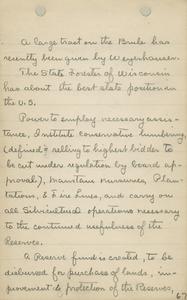 A large tract on the Brule has
recently been given by Weyerhaeuser.
The State Forester of Wisconsin
has about the best state position in
the U.S.
Power to employ necessary assis-
tance, Institute conservative lumbering,
(defined & selling to highest bidder to
be cut under regulation by board ap-
proval), maintain nurseries, Plan-
tations, & Fire Lines, and carry on
all Silvicultural operations necessary
to the continued usefulness of the
Reserves.
A Reserve fund is created, to be
disbursed for purchase of lands, im-
provement & protection of the Reserves,